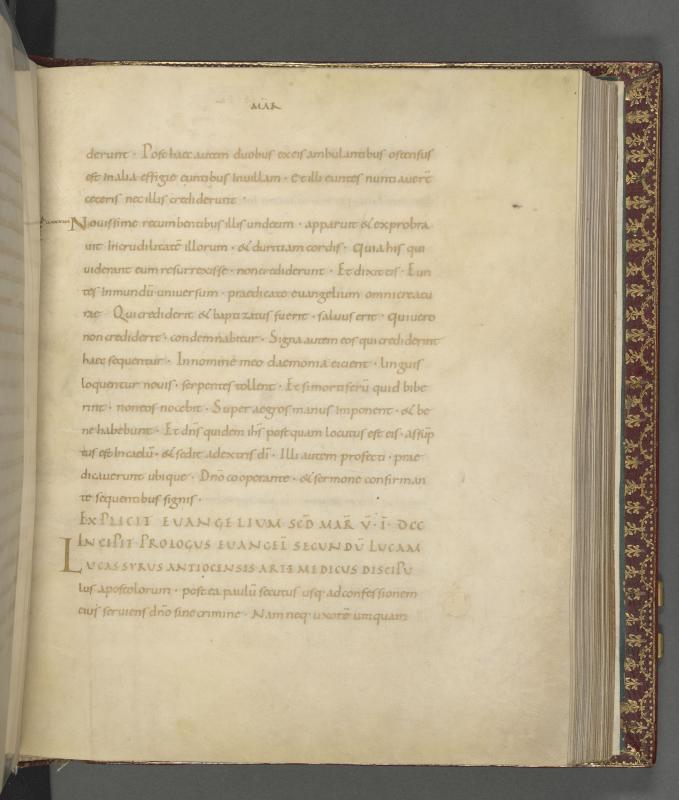 MAR
derunt · Post haec autem duobus ex eis ambulantibus ostensus
est In alia effigie euntibus In uillam · Et illi euntes nuntiauert̄
ceteris nec illis crediderunt ·
Nouissime recumbentibus illis undecim · apparuit & exprobra
uit Incredilitatē illorum · & duritiam cordis · Quia his qui
uiderant eum resurrexisse · non crediderunt · Et dixit eis · Eun
tes In mundū uniuersum · praedicate euangelium omni creatu
rae · Qui crediderit & baptizatus fuerit · saluus erit · qui uero
non crediderit · condemnabitur · Signa autem eos qui crediderint
haec sequentur · In nomine meo daemonia eicient · linguis
loquentur nouis · serpentes tollent · Et si mortiferū quid bibe
rint · non eos nocebit · Super aegros manus imponent · & be
ne habebunt · Et dn̄s quidem ih̄s postquam locutus est eis · assūp
tus est In caelū · & sedit a dextris dī · Illi autem profecti · prae
dicauerunt ubique · Dn̄o cooperante · & sermone confirman
te sequentibus signis ·
EXPLICIT EUANGELIUM SCD̄ MAR̄ V̄ · Ī · DCC
INCIPIT PROLOGUS EUANGEL̄ SECUNDŪ LUCAM
LUCAS SYRUS ANTIOCENSIS ARTE MEDICUS DISCIPU
lus apostolorum · postea paulū secutus usq· ad confessionem
eius seruiens dn̄o sine crimine · Nam neq· uxorē umquam